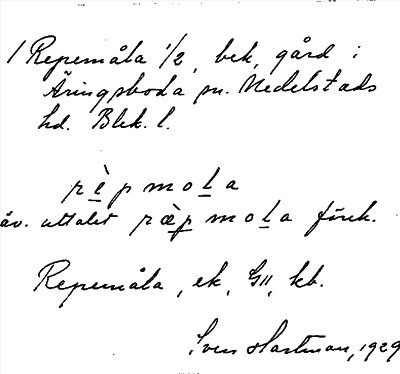 1 Repemåla 1/2, bek. gård i
Äringsboda sn. Medelstads
hd. Blek. l.
rèpmola
äv. uttalet ræ̀pmola förek.
Repemåla, ek, GII, kb.
Sven Hartman, 1929